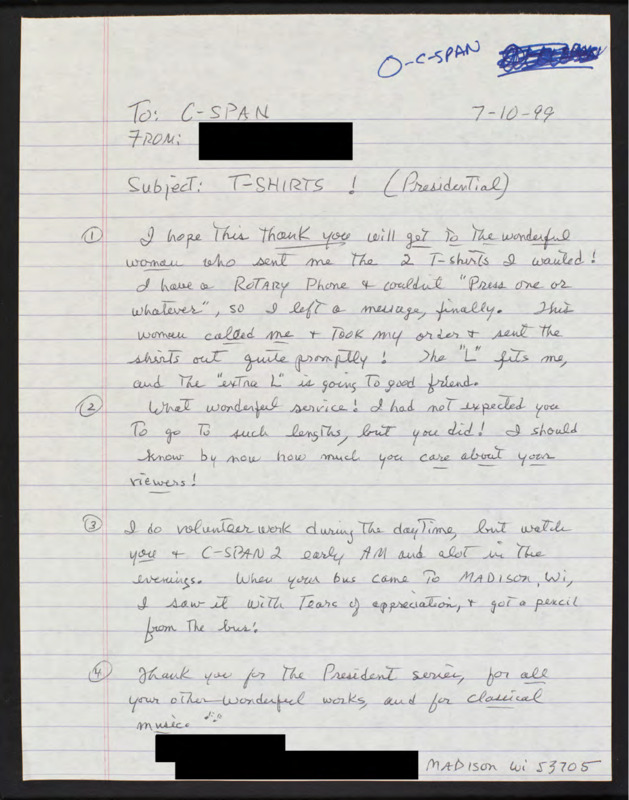 O-C-SPAN
To: C-SPAN 7-10-99
FROM:
Subject: T-SHIRTS ! (Presidential)
① I hope This thank you will get To The wonderful
woman who sent me The 2 T-shirts I wanted!
I have a ROTARY Phone & couldnt "Press one or
whatever", so I left a message, finally. This
woman called me & TOOK my order & sent the
shirts out quite promptly! The "L" fits me,
and The "extra L" is going To good friend.
② What wonderful service! I had not expected you
To go To such lengths, but you did! I should
know by now how much you care about your
viewers!
③ I do volunteer work during The dayTime, but watch
you & C-SPAN 2 early AM and alot in The
evenings. When your bus came To MADISON, Wi,
I saw it with Tears of appreciation, & got a pencil
from The bus!
④ Thank you for The President series, for all
your other wonderful works, and for classical
music.
MADISON Wi 53705